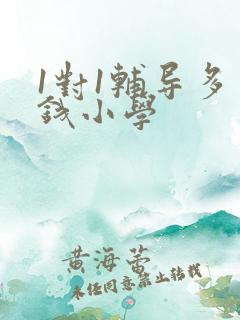 1對1輔导多
錢小學
黄海蕾
未经同意禁止转载